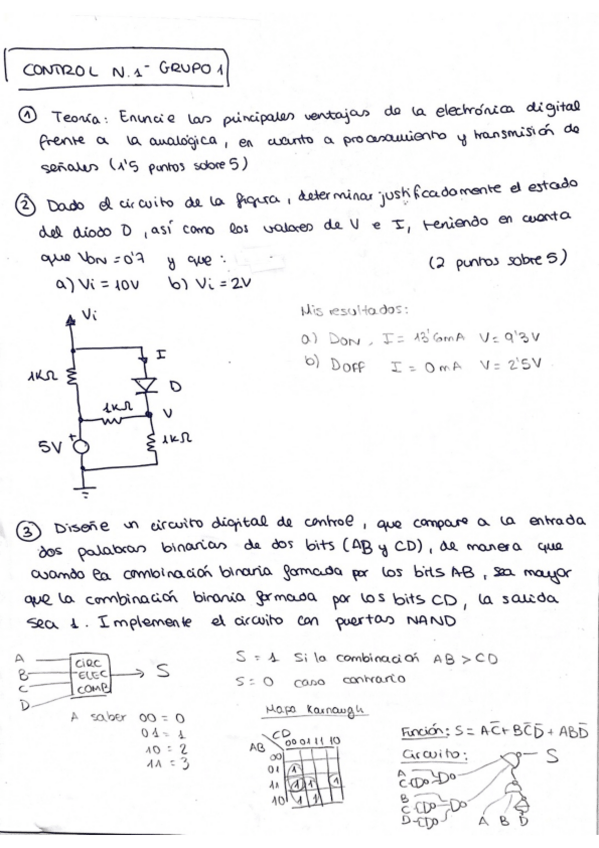 CONTROL N.1 - GRUPO 1
① Teoría: Enuncie las principales ventajas de la electrónica digital
frente a la analógica, en cuanto a procesamiento y transmisión de
señales (1'5 puntos sobre 5)
② Dado el circuito de la figura, determinar justificadamente el estado
del diodo D, así como los valores de V e I, teniendo en cuenta
que VON = 0'7 y que: (2 puntos sobre 5)
a) Vi = 10V b) Vi = 2V
Mis resultados:
a) DON, I = 13'6mA V = 9'3V
b) DOFF I = 0mA V = 2'5V
Vi
I
1KΩ
D
1KΩ
V
5V
+
1KΩ
③ Diseñe un circuito digital de control, que compare a la entrada
dos palabras binarias de dos bits (AB y CD), de manera que
cuando la combinación binaria formada por los bits AB, sea mayor
que la combinación binaria formada por los bits CD, la salida
sea 1. Implemente el circuito con puertas NAND
A
B
C
D
CIRC
ELEC
COMP
S
S = 1 Si la combinación AB > CD
S = 0 caso contrario
A saber 00 = 0
01 = 1
10 = 2
11 = 3
Mapa Karnaugh
CD
AB 00 01 11 10
00
01 1
11 1 1 1
10 1 1
Función: S = AC̅ + BC̅D̅ + ABD̅
Circuito:
S
A
C
B
C
D
A B D